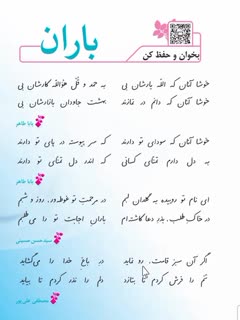 باران
بخوان و حفظ کن
خوشا آنان که الله یارشان بی به حمد و قُل هوَالله کارشان بی
خوشا آنان که دائم در نمازند بهشت جاودان بازارشان بی
بابا طاهر
خوشا آنان که سودای تو دارند که سر پیوسته در پای تو دارند
به دل دارم تمنای کسانی که اندر دل تمنای تو دارند
بابا طاهر
ای نام تو روییده به گلدان لبم در مرحمت تو غوطه‌ور، روز و شبم
در خاک طلب، بذر دعا کاشته‌ام باران اجابت تو را می‌طلبم
سید حسن حسینی
اگر آن سبز قامت، رو نماید در باغ خدا را می‌گشاید
تنم را فرش کردم تا بتازد دلم را نذر کردم تا بیاید
مصطفی علی‌پور